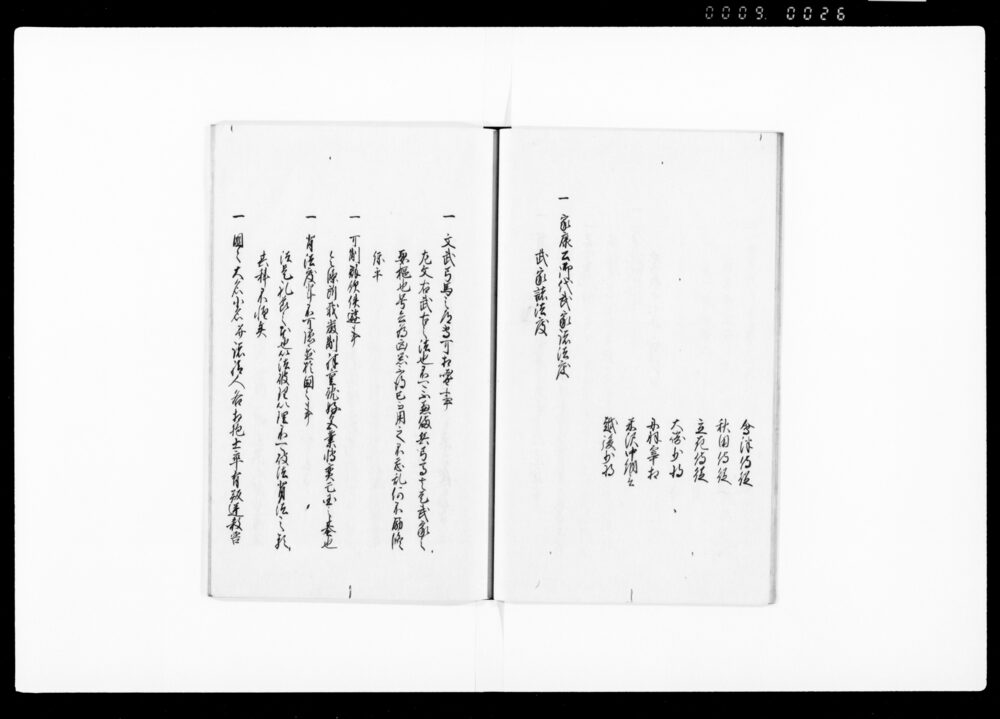 0009. 0026
会津侍従
秋田侍従
立花侍従
大崎少将
丹羽宰相
米沢中納言
越後少将
一 家康公御代武家諸法度
武家諸法度
一 文武弓馬之道専可相嗜事
左文右武古之法也不可不兼備矣弓馬者是武家之
要枢也号兵為凶器不得已而用之治不忘乱何不励修
練乎
一 可制群飲佚遊事
令条所載厳制殊重耽好色業博奕是亡国之基也
一 背法度輩不可隠置於国々事
法是礼節之本也以法破理以理不破法背法之類
其科不軽矣
一 国々大名小名并諸給人各相抱士卒有叛逆殺害